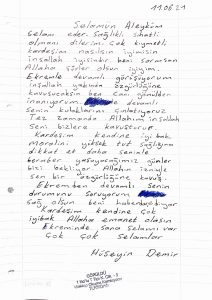 11.06.21
Selamün Aleyküm
Selam eder sağlıklı sıhatli
olmanı dilerim. Çok kıymetli
kardeşim nasılsın iyimisin
inşallah iyisindir. beni sorarsan
Allaha şükür olsun iyiyim.
Ekremle devamlı görüşüyorum
inşallah yakında özgürlüğüne
kavuşucaksın ben can gönülden
inanıyorum. devamlı
senin kulaklarını çınlatıyoruz
Tez zamanda Allahım inşallah
Seni bizlere kavuşturur.
Kardeşim kendine iyi bak
Moralini yüksek tut Sağlığına
dikkat et daha seninle
beraber yaşayacağımız günler
bizi bekliyor. Allahın izniyle
sen bir özgürlüğüne kavuş.
Ekremden devamlı senin
durumunu soruyorum
sağ olsun beni haberdar ediyor
Kardeşim kendine çok
iyi bak Allaha emanet olasın
Ekreminde sana selamı var
Çok Çok Selamlar
Hüseyin Demir
GÖRÜLDÜ